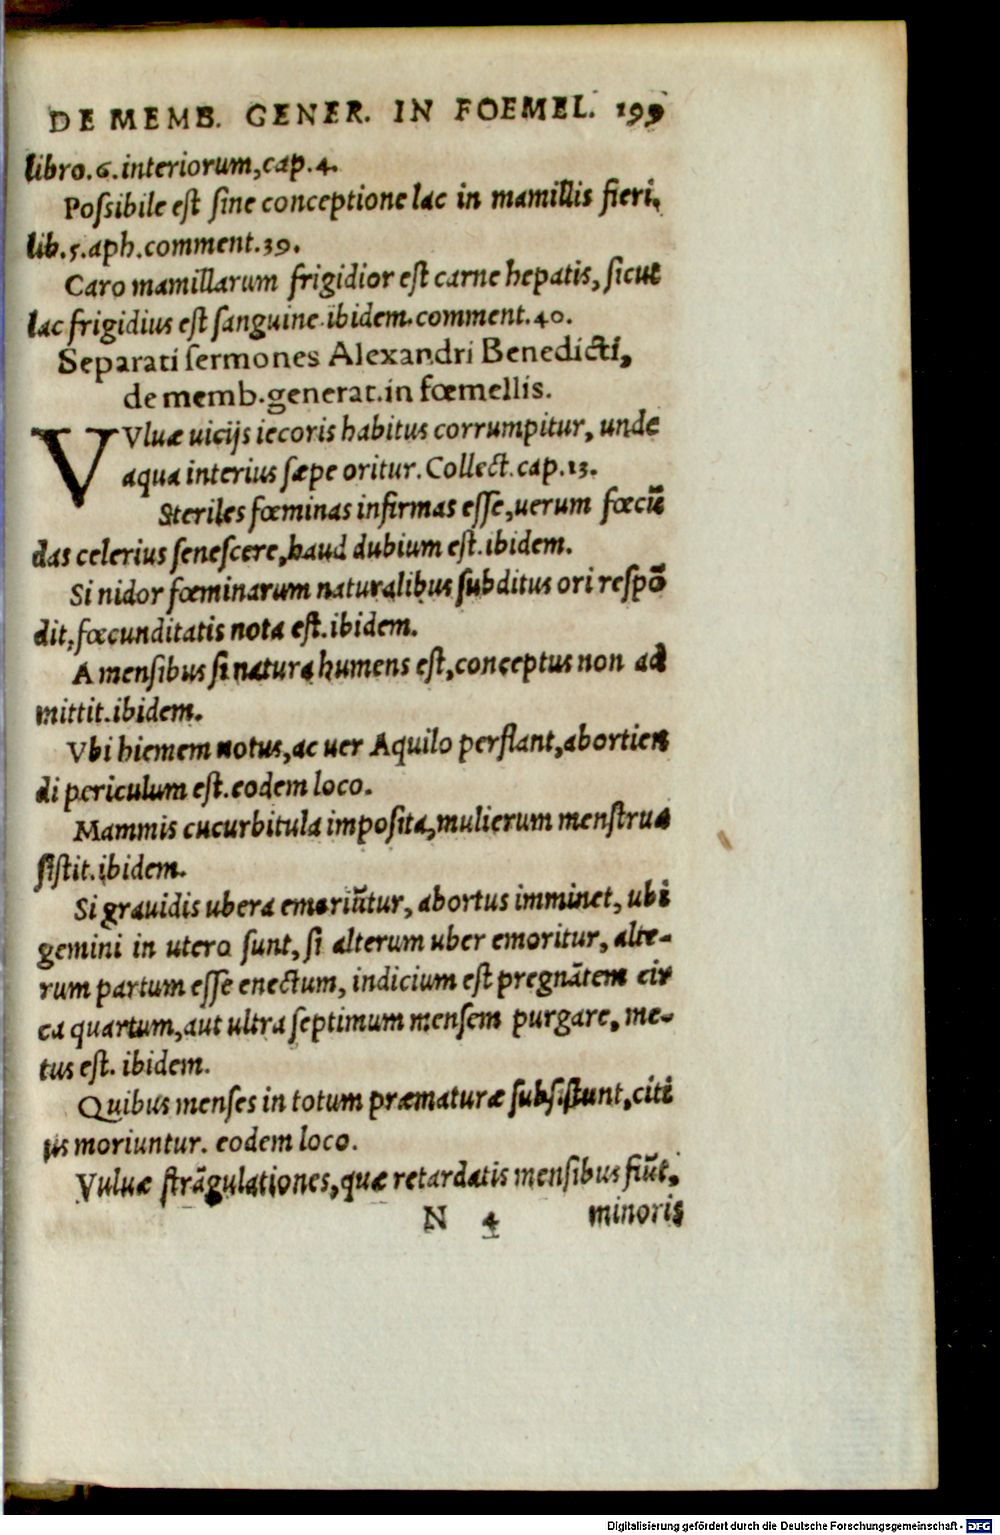 DE MEMB. GENER. IN FOEMEL. 199
libro.6.interiorum,cap.4.
Poſsibile eſt ſine conceptione lac in mamillis fieri,
lib.5.aph.comment.39.
Caro mamillarum frigidior eſt carne hepatis, ſicut
lac frigidius eſt ſanguine.ibidem.comment.40.
Separati ſermones Alexandri Benedicti,
de memb.generat.in fœmellis.
VVluæ uicijs iecoris habitus corrumpitur, unde
aqua interius ſæpe oritur. Collect.cap.13.
Steriles fœminas infirmas eſſe,uerum fœcū
das celerius ſeneſcere,haud dubium eſt.ibidem.
Si nidor fœminarum naturalibus ſubditus ori reſpō
dit,fœcunditatis nota eſt.ibidem.
A menſibus ſi natura humens eſt,conceptus non ad
mittit.ibidem.
Vbi hiemem notus,ac uer Aquilo perflant,abortien
di periculum eſt.eodem loco.
Mammis cucurbitula impoſita,mulierum menſtrua
ſiſtit.ibidem.
Si grauidis ubera emoriūtur, abortus imminet, ubi
gemini in utero ſunt, ſi alterum uber emoritur, alte-
rum partum eſſe enectum, indicium eſt pregnātem cir
ca quartum,aut ultra ſeptimum menſem purgare, me-
tus eſt. ibidem.
Quibus menſes in totum præmaturæ ſubſiſtunt,citi
us moriuntur. eodem loco.
Vuluæ ſtrāgulationes,quæ retardatis menſibus fiūt,
N 4 minoris
Digitalisierung gefördert durch die Deutsche Forschungsgemeinschaft - DFG